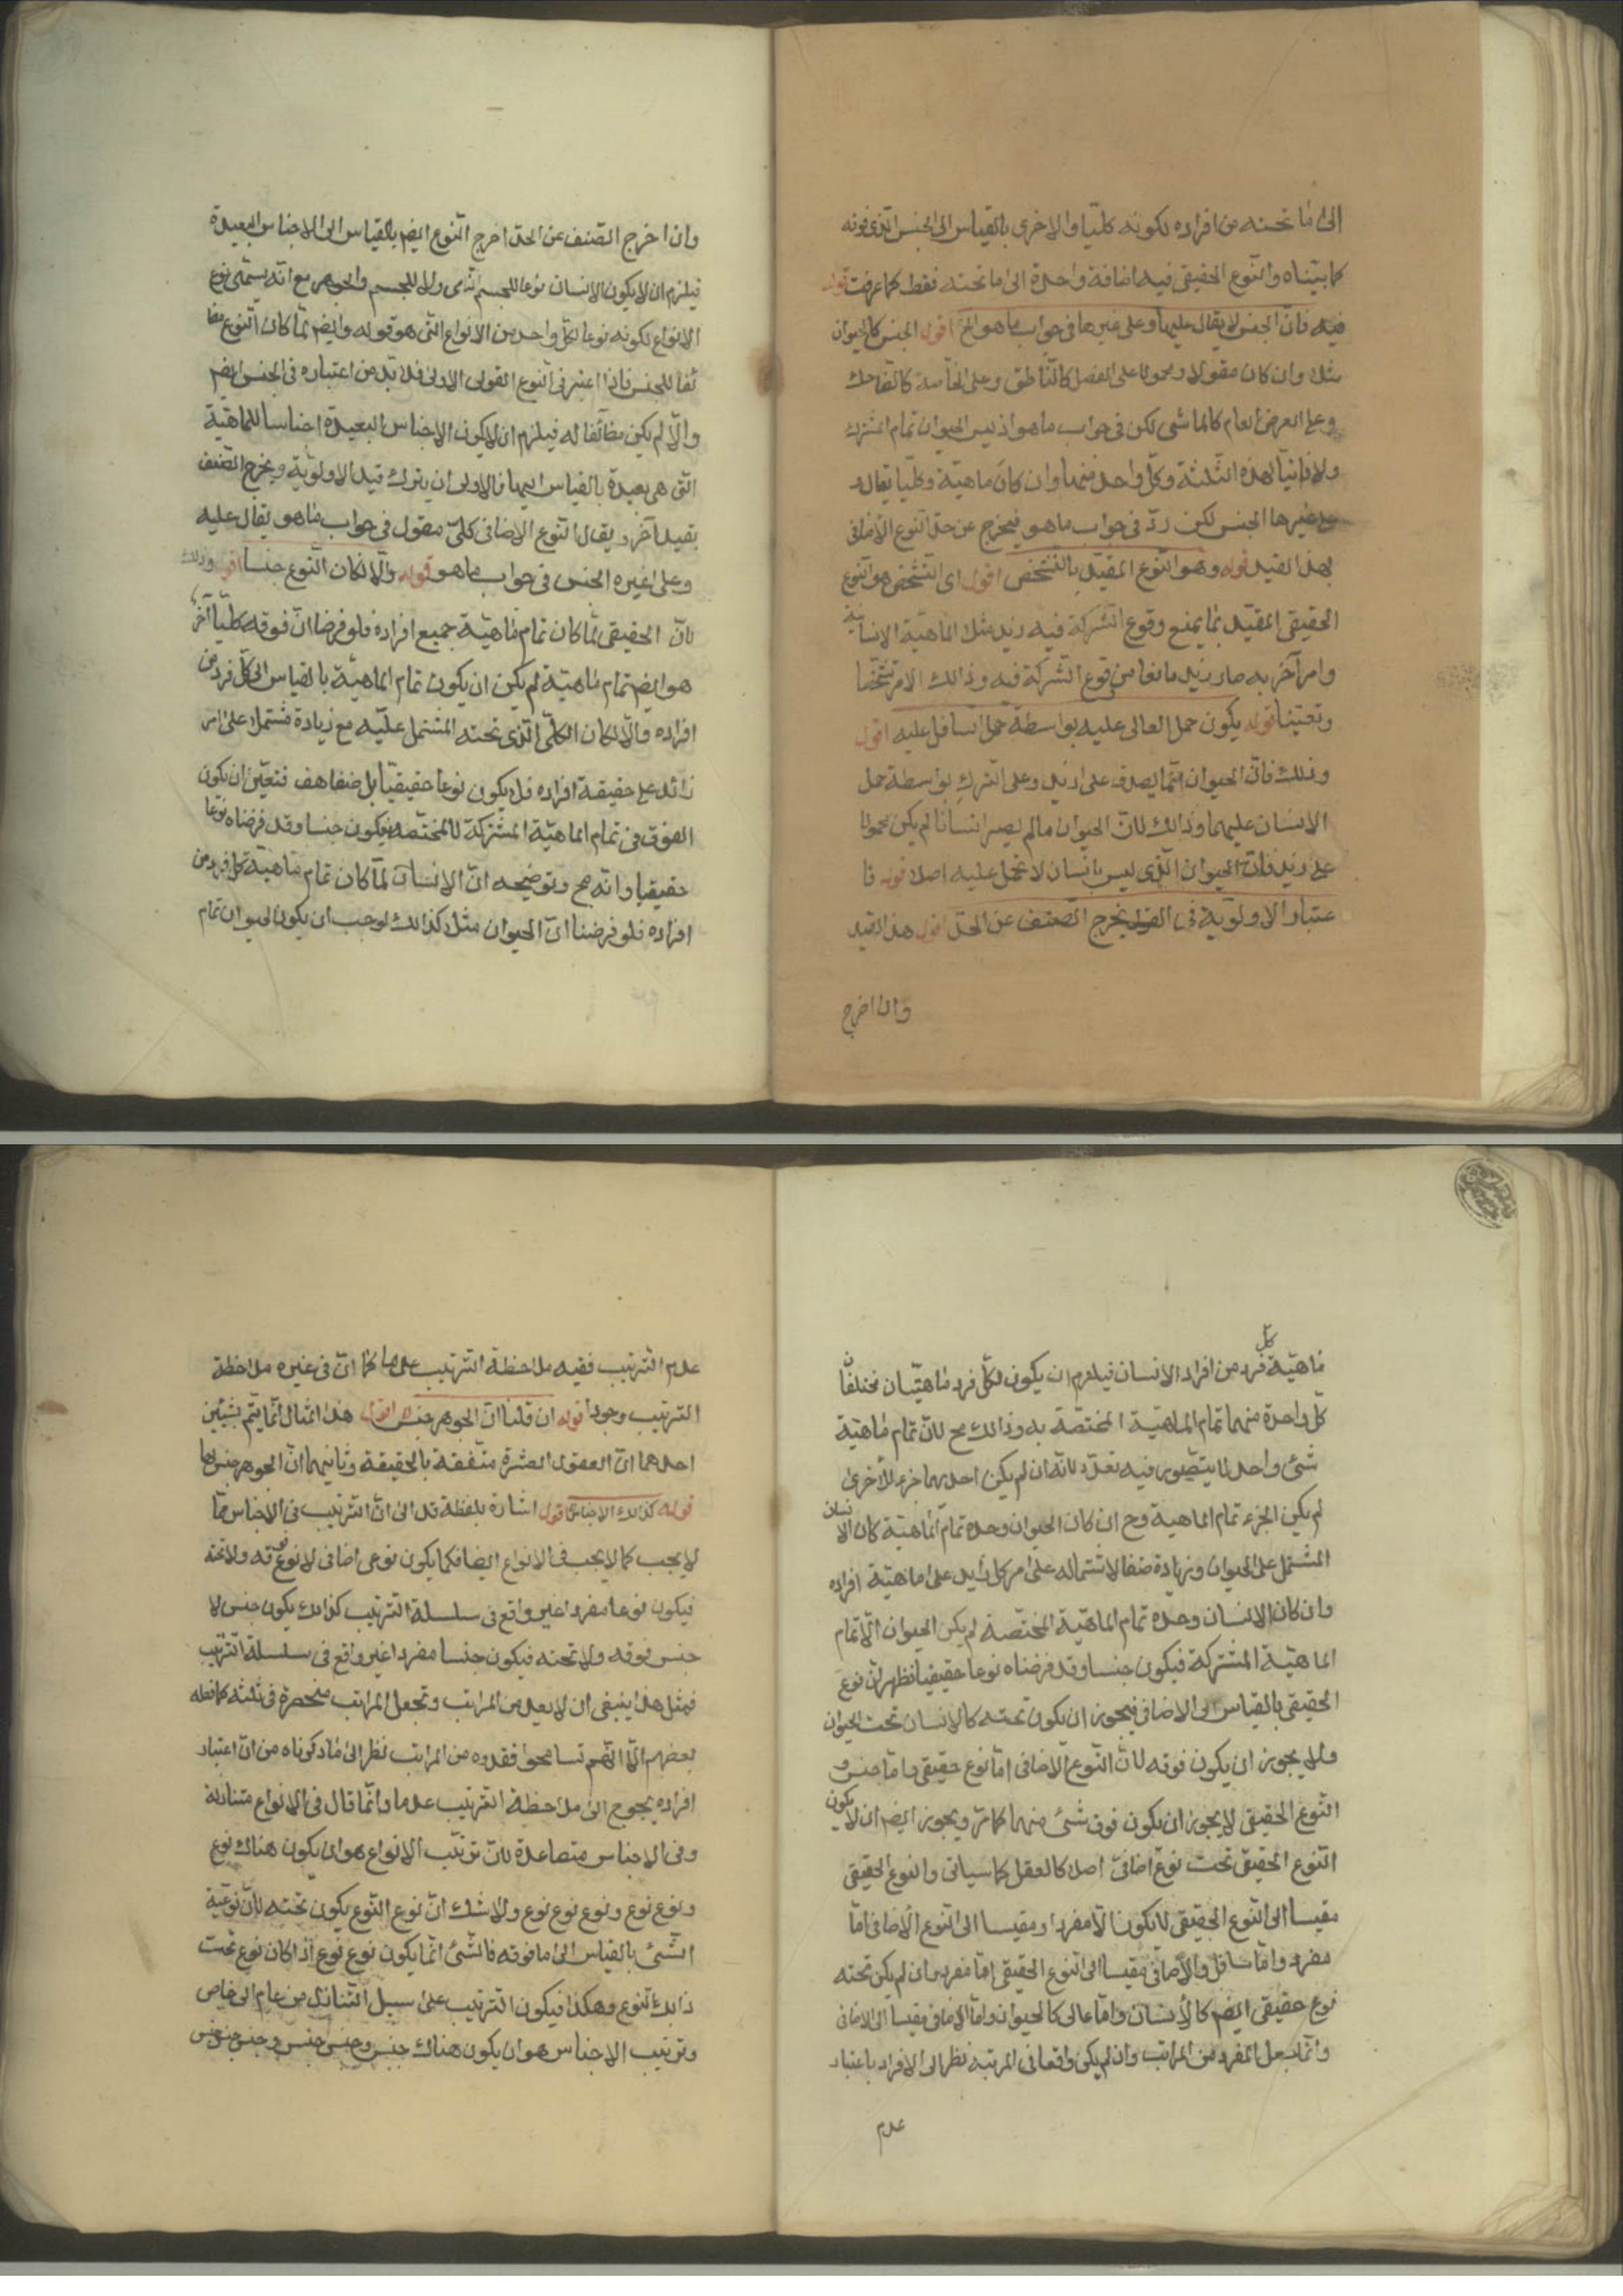 الى ما تحته من افراده لكونه كليا والاخرى بالقياس الى الجنس الذى فوقه
كما بيّناه والنوع الحقيقى فيه اضافة واحدة الى ما تحته فقط كما عرفت قوله
فيه فانّ الجنس لا يقال عليها وعلى غيرها فى جواب ما هو الخ اقول الجنس كالحيوان
مثلا وان كان مقولا ومحمولا على الفصل كالناطق وعلى الخاصة كالضاحك
وعلى العرض العام كالماشى لكن فى جواب ما هو اذ ليس الحيوان تمام المشترك
ولا ذاتيا لهذه الثلثة وكل واحد منها وان كان ماهيّة وكليّا يقال
على غيرها الجنس لكن ردّ فى جواب ما هو فيخرج عن حدّ النوع الاضافى
بهذا القيد قوله وهو النوع المقيّد بالتشخص اقول اى الشخص هو النوع
الحقيقى المقيّد بما يمنع وقوع الشركة فيه زيد مثلا الماهيّة الانسانية
وامر آخر به صار زيد مانعا من وقوع الشركة فيه وذالك الامر تشخّصا
وتعيّنا قوله يكون حمل العالى عليه بواسطة حمل السافل عليه اقول
وذلك فانّ الحيوان انّما يصدق على زيد وعلى الترك بواسطة حمل
الانسان عليهما وذالك لانّ الحيوان ما لم يصير انسانا لم يكن محمولا
على زيد فانّ الحيوان الذى ليس بانسان لا تحمل عليه اصلا قوله فا
عتبار الاولويّة فى القول يخرج الصنف عن الحدّ اقول هذا القيد
وان اخرج
وان اخرج الصنف عن الحدّ اخرج النوع ايضم بالقياس الى الاجناس البعيدة
فيلزم ان لا يكون الانسان نوعا للجسم النامى ولا للجسم والجوهر مع انّه يسمّى نوع
الانواع لكونه نوعا لكلّ واحد من الانواع التى هو فوقه وايضم لمّا كان النوع مضا
ئفا للجنس فاذا اعتبر فى النوع القول الاولى فلا بدّ من اعتباره فى الجنس ايضم
والّا لم يكن مضائفا له فيلزم ان لا يكون الاجناس البعيدة اجناسا للماهيّة
التى هى بعيدة بالقياس اليها فالاولى ان يترك قيد الاولويّة ويخرج الصنف
بقيد آخر ويقال النوع الاضافى كلىّ مقول فى جواب ما هو يقال عليه
وعلى غيره الجنس فى جواب ما هو قوله والّا لكان النوع جنسا اقول وذلك
لانّ الحقيقى لمّا كان تمام ماهيّة جميع افراده فلو فرضنا انّ فوقه كليّا آخر
هو ايضم تمام ماهيّة لم يكن ان يكون تمام الماهيّة بالقياس الى كلّ فرد من
افراده والّا لكان الكلّى الذى تحته المشتمل عليه مع زيادة مشتملا على امر
زائد على حقيقة افراده فلا يكون نوعا حقيقيّا بل صنفا هف فتعيّن ان يكون
الفوق فى تمام الماهيّة المشتركة لا المختصّة فيكون جنسا وقد فرضناه نوعا
حقيقيا وانّه مح وتوضيحه انّ الانسان لمّا كان تمام ماهيّة كلّ فرد من
افراده فلو فرضنا انّ الحيوان مثلا كذالك لوجب ان يكون الحيوان تمام
ماهيّة كلّ فرد من افراد الانسان فيلزم ان يكون لكلّ فرد ماهيّتان مختلفتان
كلّ واحدة منهما تمام الماهيّة المختصّة به وذالك مح لانّ تمام ماهيّة
شئ واحد لا يتصّور فيه تعدّد لانّه ان لم يكن احديهما جزء للاخرى
لم يكن الجزء تمام الماهية وح ان كان الحيوان وحده تمام الماهيّة كان الانسان
المشتمل على الحيوان وزيادة صنفا لاشتماله على امر كل زايد على ماهيّة افراده
وان كان الانسان وحده تمام الماهيّة المختصّة لم يكن الحيوان الّا تمام
الماهيّة المشتركة فيكون جنسا وقد فرضناه نوعا حقيقيا فظهر انّ نوع
الحقيقى بالقياس الى الاضافى فيجوز ان يكون تحته كالانسان تحت الحيوان
ولا يجوز ان يكون فوقه لانّ النوع الاضافى امّا نوع حقيقى وامّا جنس و
النوع الحقيقى لا يجوز ان يكون فوق شئ منهما كما مرّ ويجوز ايضم ان لا يكون
النوع الحقيقى تحت نوع اضافىّ اصلا كالعقل كما سياتى والنوع الحقيقى
مقيسا الى النوع الحقيقى لا يكون الّا مفردا ومقيسا الى النوع الاضافى امّا
مفرد وامّا سافل والاضافىّ مقيسا الى النوع الحقيقى امّا مفرد ان لم يكن تحته
نوع حقيقى ايضم كالانسان وامّا عالى كالحيوان وامّا الاضافى مقيسا الى الاضافى
وانّما جعل المفرد من المراتب وان لم يكن واقعا فى المرتبة نظرا الى الافراد باعتبار
عدم
عدم الترتيب ففيه ملاحظة الترتيب عدما كما انّ فى غيره ملاحظة
الترتيب وجودا قوله ان قلنا انّ الجوهر جنس له اقول هذا المثال انّما يتمّ بشيئين
احدهما انّ العقول العشرة متّفقة بالحقيقة وثانيهما انّ الجوهر جنس لها
قوله كذالك الاجناس اقول اشارة بلفظة قد الى انّ الترتيب فى الاجناس ممّا
لا يجب كما لا يجب فى الانواع ايضا فكما يكون نوعى اضافى لا نوع فوقه ولا تحته
فيكون نوعا مفردا غير واقع فى سلسلة الترتيب كذالك يكون جنس لا
جنس فوقه ولا تحته فيكون جنسا مفردا غير واقع فى سلسلة الترتيب
فمثل هذا ينبغى ان لا يعدّ من المراتب وتجعل المراتب منحصرة فى ثلثه كما فعله
بعضهم الّا انّهم تسامحوا فعّدوه من المراتب نظرا الى ما ذكرناه من انّ اعتبار
افراده يحوج الى ملاحظة الترتيب عدما وانّما قال فى الانواع متنازلة
وفى الاجناس متصاعدة لانّ ترتيب الانواع هو ان يكون هناك نوع
ونوع نوع ونوع نوع نوع ولا شك انّ نوع النوع يكون تحته لانّ نوعيّة
الشّئ بالقياس الى ما فوقه فالشّئ انّما يكون نوع نوع اذا كان نوع تحت
ذالك النوع وهكذا فيكون الترتيب على سبيل التنازل من عام الى خاص
وترتيب الاجناس هو ان يكون هناك جنس وجنس جنس وجنس جنس جنس